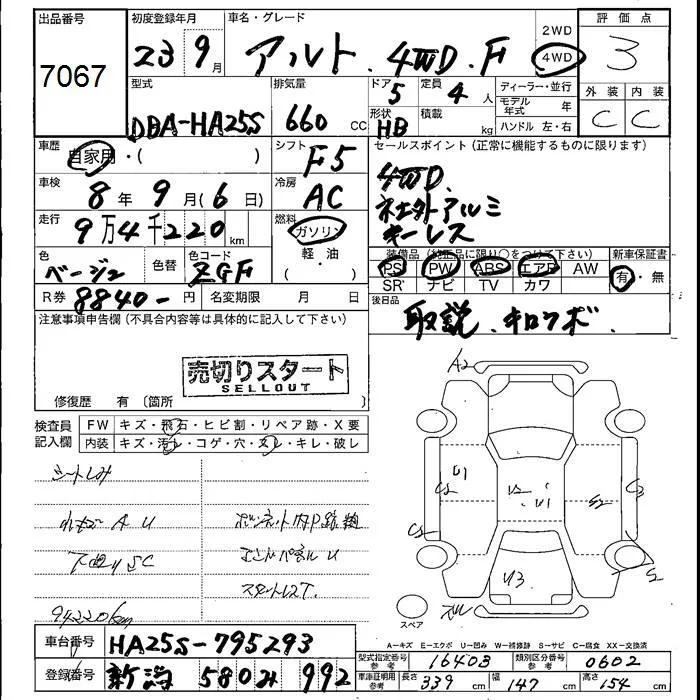 出品番号 初度登録年月 車名・グレード 2WD 評価点
7067 23 9月 アルト. 4WD. F 4WD 3
型式 排気量 ドア 定員 ディーラー・並行 外装 内装
DBA-HA25S 660 CC 5 4人 モデル年式 年 C C
形状 積載 ハンドル 左・右
HB kg
車歴 シフト セールスポイント(正常に機能するものに限ります)
自家用・( ) F5 4WD.
車検 冷房 社外アルミ
8年 9月(6日) AC キーレス
走行 燃料
9万4千220km ガソリン 装備品(純正品に限り○をつけて下さい) 新車保証書
色 色替 色コード 軽・油 PS PW ABS エアB AW 有・無
ベージュ ZGF SR' ナビ TV カワ
R券 8840-円 名変期限 月 日 後日品
取説. キロクボ.
注意事項申告欄(不具合内容等は具体的に記入して下さい)
売切りスタート
SELLOUT
修復歴 有(箇所
A2
検査員記入欄 FW キズ・飛石・ヒビ割・リペア跡・X要
内装 キズ・汚レ・コゲ・穴・スレ・キレ・破レ
シートしみ
U1 C2 U2 U1 S2 C2
A U ボンネット内P跡
下廻りSC エンドパネルU C2
S2
U3
94220km
スペア
A−キズ E−エクボ U−凹み W−補修跡 S−サビ C−腐食 XX−交換済
車台番号 HA25S-795293
型式指定番号 参考 16403 類別区分番号 参考 0602
登録番号 新潟 580 み 992
車庫証明用 参考 長さ 339cm 幅 147cm 高さ 154cm